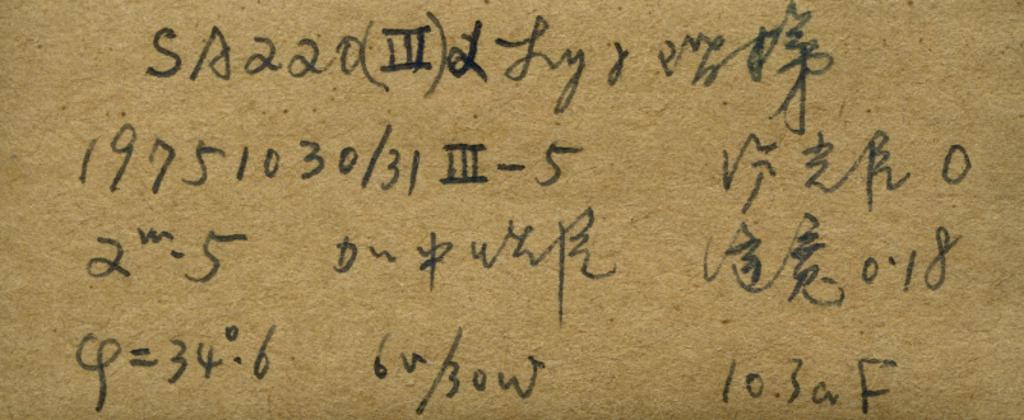 SA220(III)α Lyr 阶梯
19751030/31 III-5 冷光片 0
2ᵐ.5 加中性片 宽 0.18
φ=34°.6 6v/30w 10.3aF